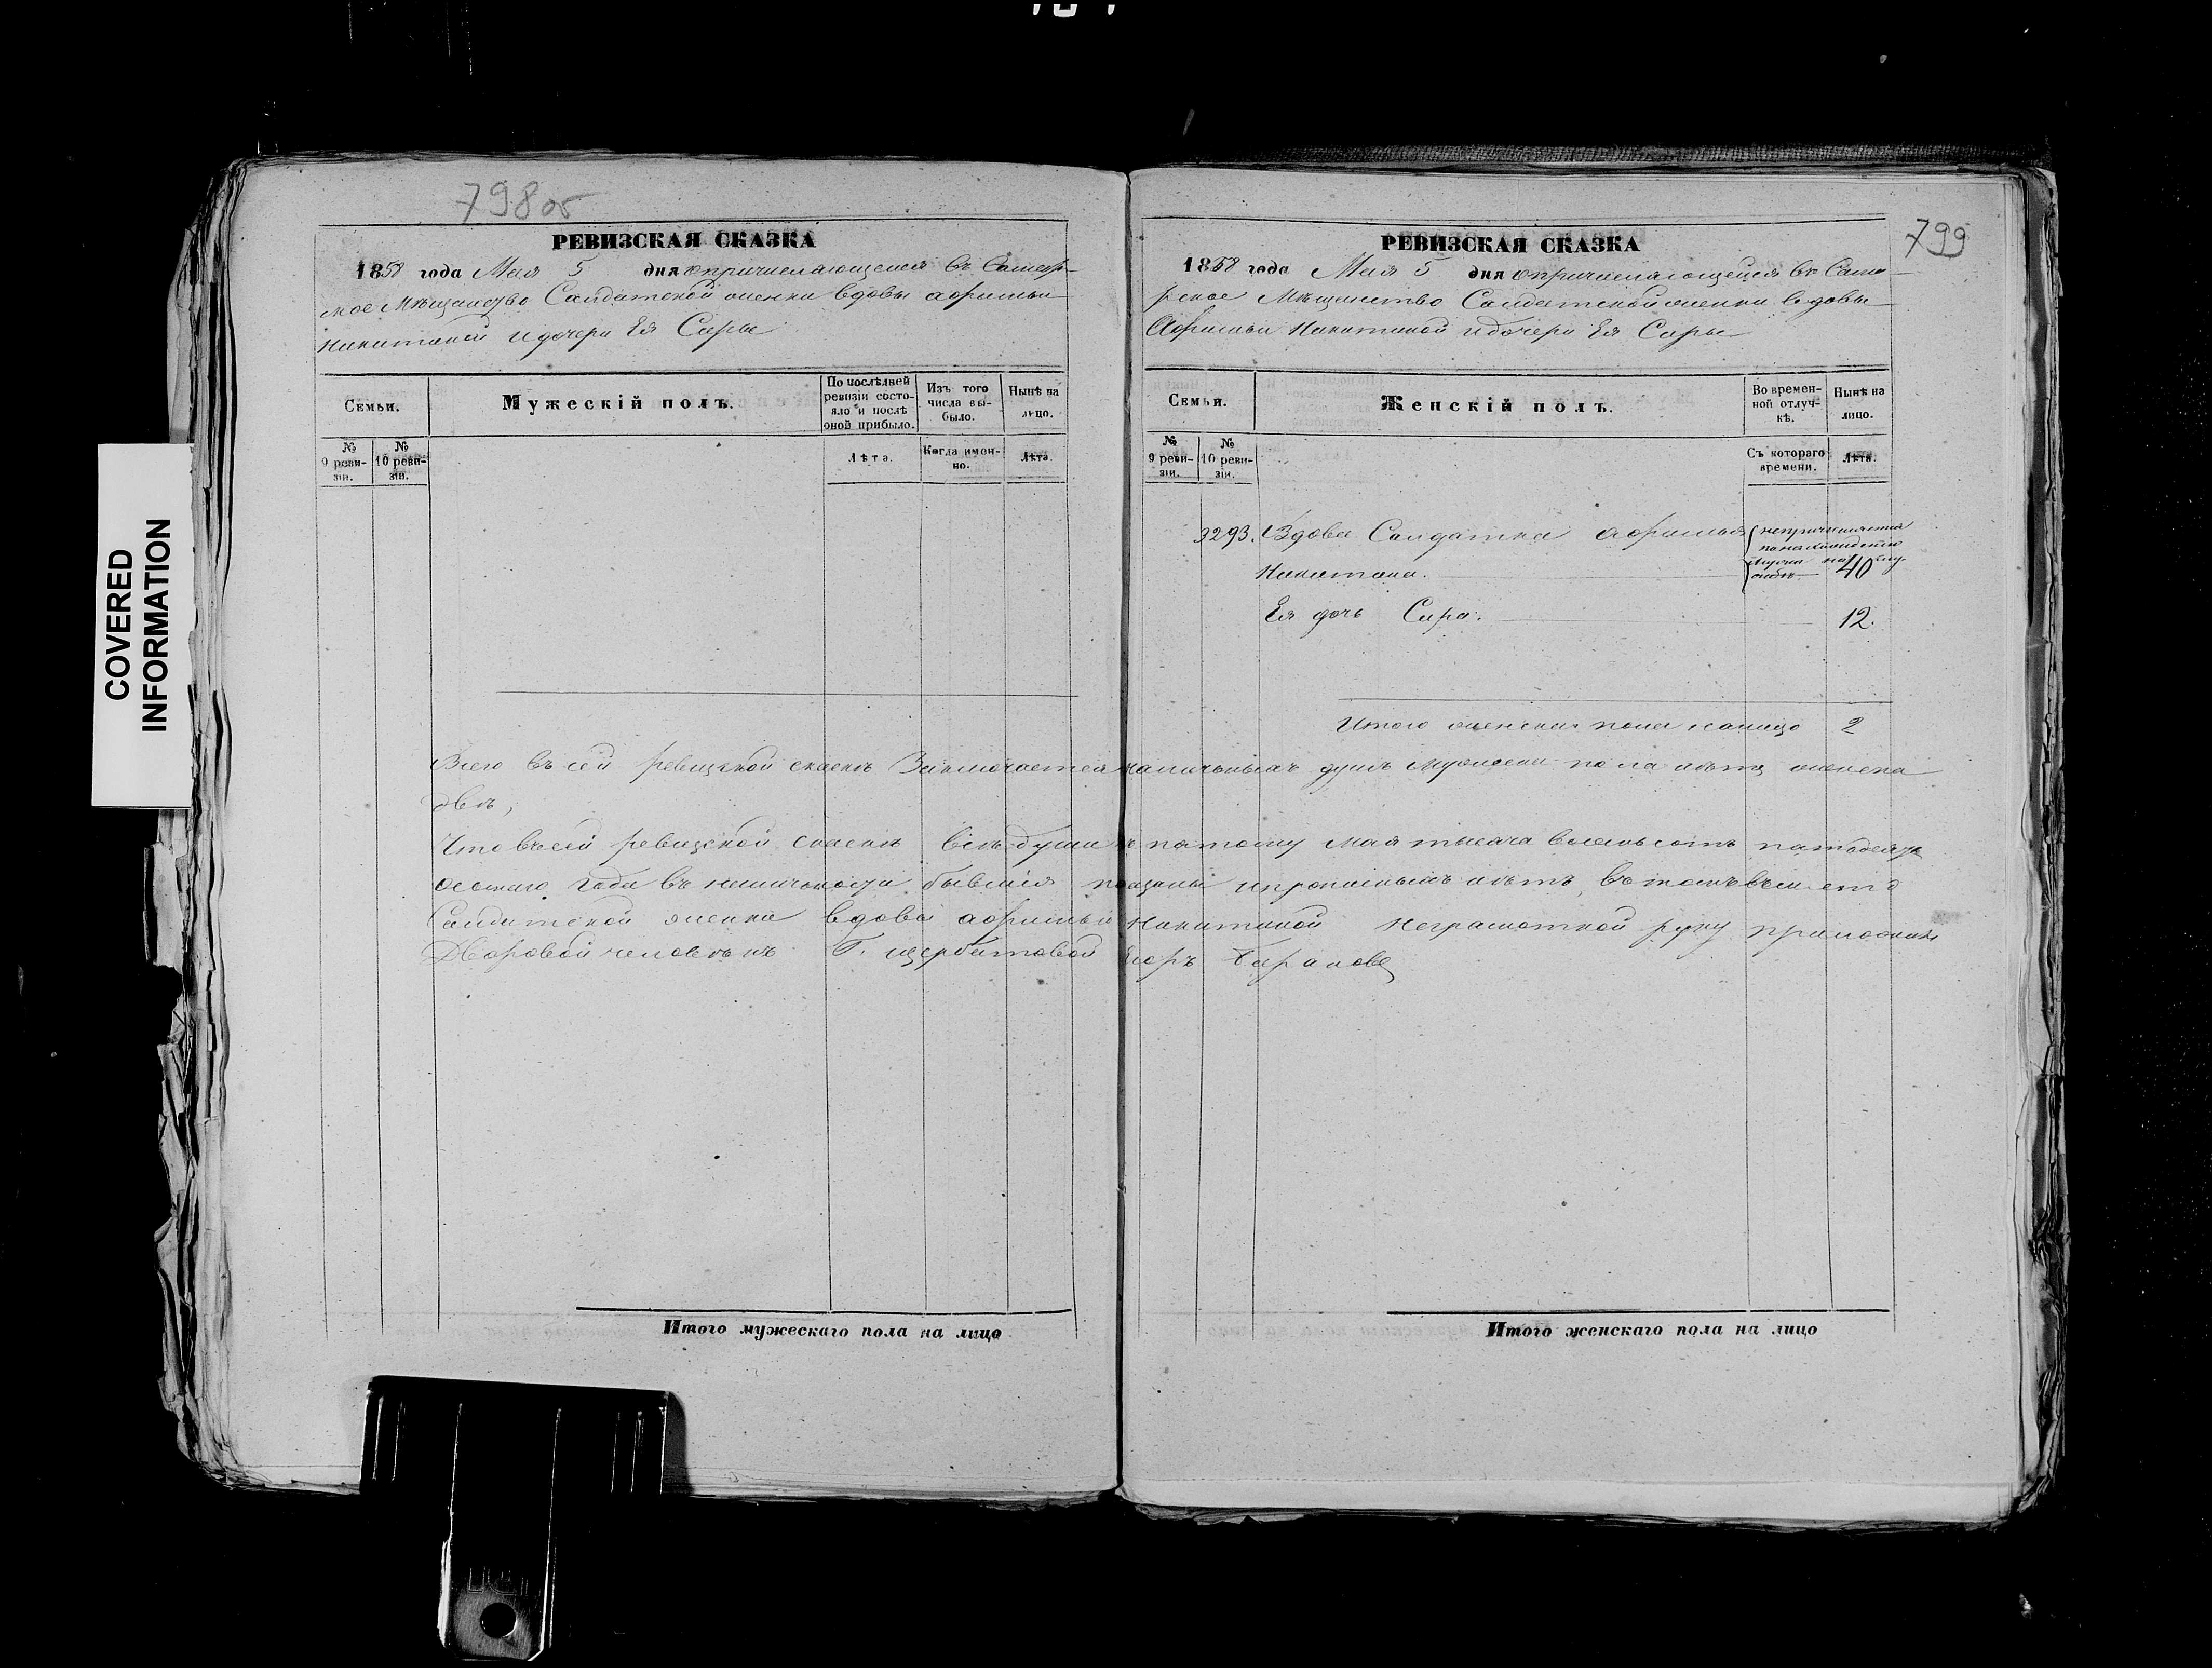 798об
РЕВИЗСКАЯ СКАЗКА
1858 года Мая 5 дня о причисляющейся въ Самар-
ское Мѣщанство Салдатской женки вдовы Афимьи
Никитиной и дочери Ея Сары
Семьи.
Мужескій полъ.
По послѣдней ревизіи состояло и послѣ оной прибыло.
Изъ того числа выбыло.
Нынѣ на лицо.
№ 9 ревизіи.
№ 10 ревизіи.
Лѣта.
Когда именно.
Лѣта.
Итого мужескаго пола на лицо
COVERED
INFORMATION
799
РЕВИЗСКАЯ СКАЗКА
1858 года Мая 5 дня о причисляющейся въ Сама-
рское Мѣщанство Салдатской женки вдовы
Афимьи Никитиной и дочери Ея Сары
Семьи.
Женскій полъ.
Во временной отлучкѣ.
Нынѣ на лицо.
№ 9 ревизіи.
№ 10 ревизіи.
Съ котораго времени.
Лѣта.
3293. Вдова Салдатка Афимья
Никитина. 40
Ея дочь Сара. 12.
Итого женска пола налицо 2
Всего въ сей ревизской сказкѣ Заключается наличныхъ душъ мужеска пола нѣтъ женска
двѣ,
Что въ сей ревизской сказкѣ всѣ души к пятому мая тысяча восемьсотъ пятьдесятъ
осмаго года въ наличности бывшія показаны и прописныхъ нѣтъ, въ томъ вместо
Салдатской женки вдовы Афимьи Никитиной неграмотной руку приложилъ
Дворовой человѣкъ Г. Щербатовой Егоръ Барановъ
Итого женскаго пола на лицо